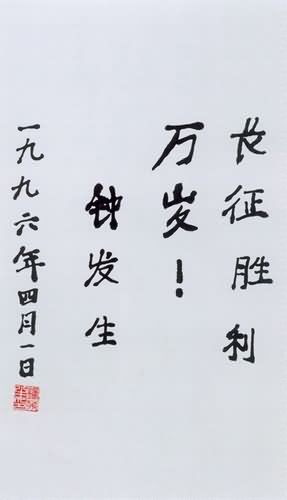 长征胜利
万岁！
钟发生
一九九六年四月一日